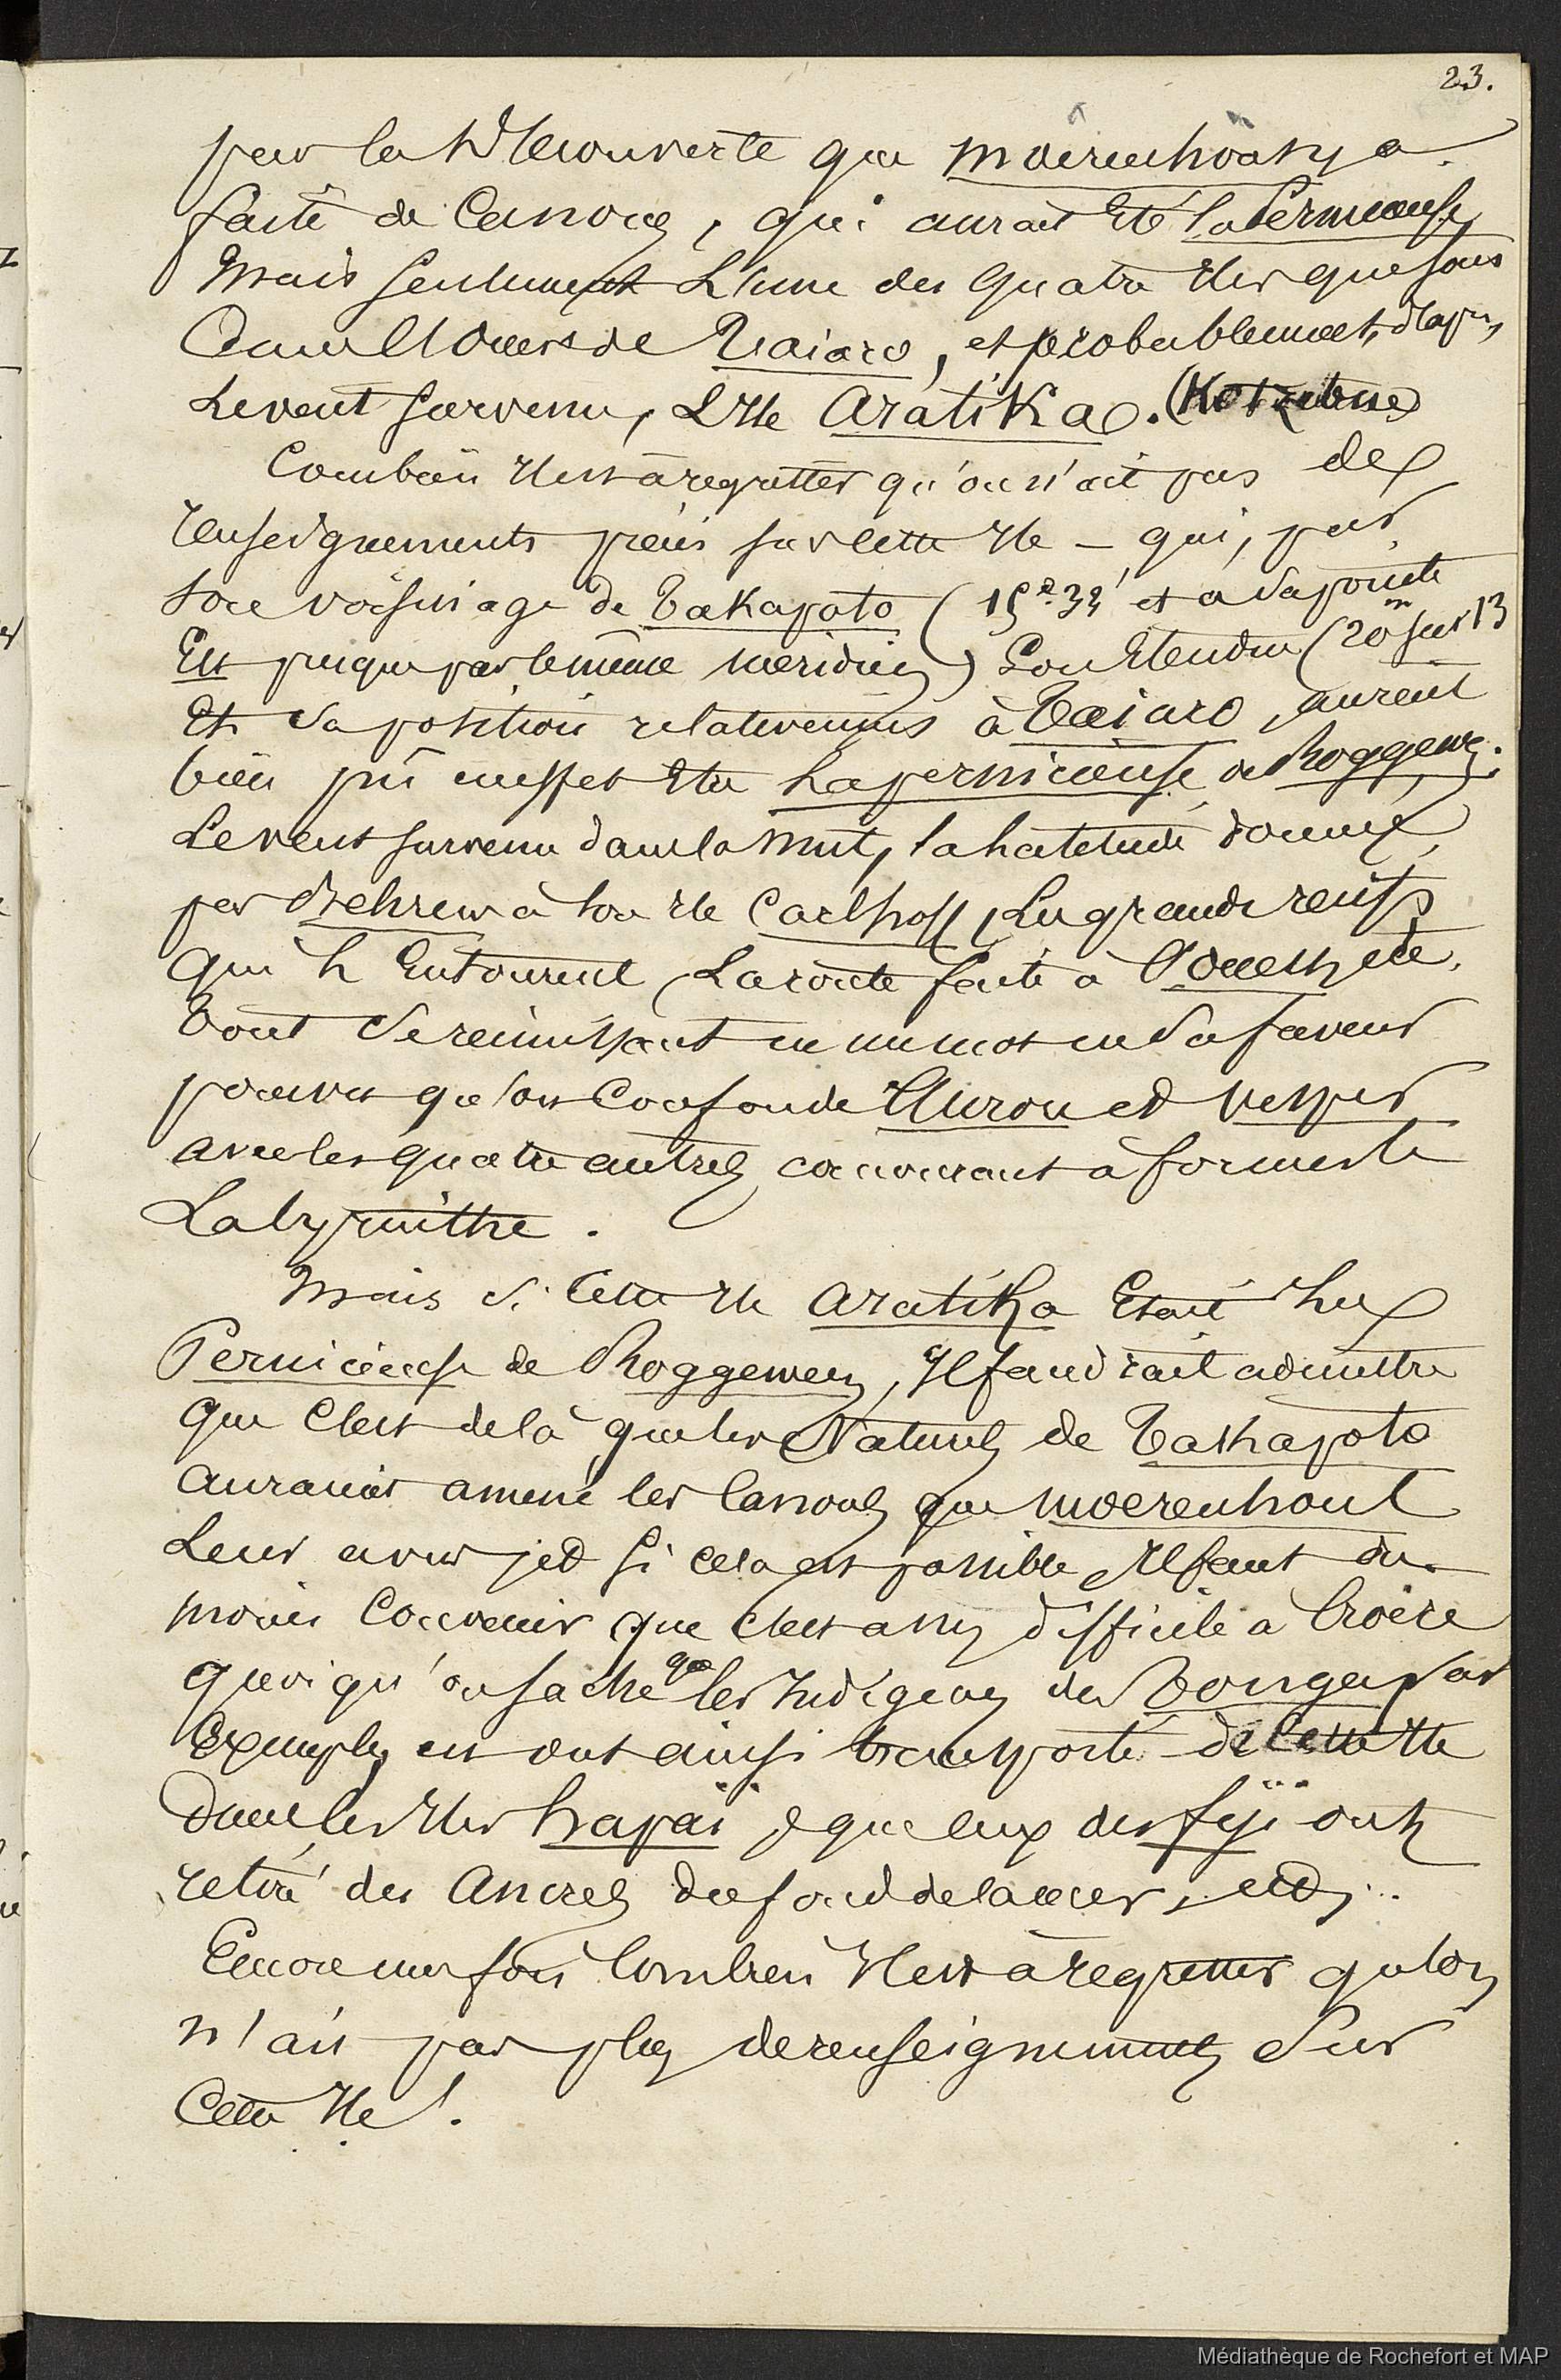 23.
par la découverte que moerenhout y a
faite de Canons, qui aurait été la Pernicieuse,
Mais seulement L'une des quatre Iles que sont
dans l'Ouest de Taiaro, et probablement, d'après
Le vent survenu, L'Ile Aratika. (Kotzebue)
Combien Il est à regretter qu'on n'ait pas de
renseignements précis sur cette Ile – qui, par
son voisinage de Takapoto ( et à sa pointe
Est presque par le même méridien) Son Etendue (20 m sur 13
Et sa position relativement à Taiaro, aurait
bien pû en effet Etre La pernicieuse de Roggewen.
Le vent survenu dans la nuit, la Latitude donnée
par Behrens à son Ile Carlhoff, Les grands récifs
qui L'Entourent, La route faite à l'Ouest, etc.
Tout se réunissant en un mot en sa faveur
pourvu que l'on Confonde l'Auron et vesper
avec les quatre autres concourant à former le
Labyrinthe.
Mais si Cette Ile Aratika Etait La
Pernicieuse de Roggewen, Il faudrait admettre
que C'est de là que les Naturels de Takapoto
auraient amené les Canons que moerenhout
Leur a vus, et si cela est possible, Il faut du
moins Convenir que c'est assez difficile à Croire
quoiqu'on sache que les Indigènes des Tonga, par
Exemple, en ont ainsi transporté de cette Ile
dans les Iles hapaï & que ceux des fiji ont
retiré des Ancres du fond de la mer, etc,..
Encore une fois Combien Il est à regretter qu'on
n'ait pas plus de renseignements Sur
Cette Ile!.
Médiathèque de Rochefort et MAP